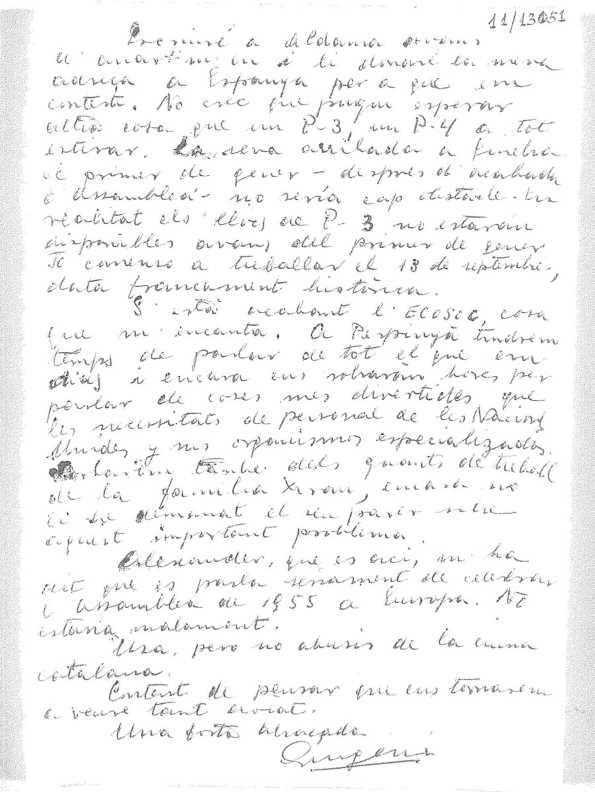 11/13651
Escriuré a Aldama avans
d'anar-me'n i li donaré la meva
adreça a Espanya per a que em
contesti. No crec que pugui esperar
altra cosa que un P-3, un P-4 a tot
estirar. La seva arribada a Ginebra
el primer de gener - després d'acabada
l'Assamblea - no seria cap obstacle. En
realitat els llocs de P-3 no estaran
disponibles avans del primer de gener
Jo comenso a treballar el 13 de septembre,
data francament histórica.
S'està acabant l'ECOSOC, cosa
que m'encanta. A Perpinyà tindrem
temps de parlar de tot el que em
dius i encara ens sobraràn hores per
parlar de coses mes divertides que
les necessitats de personal de les Nacions
Unides y sus organismos especializados.
Parlarem també dels guants de treball
de la familia Xirau, encara no
li he demanat el seu parer sobre
aquest important problema.
Alexander, que es aci, m'ha
dit que es parla seriament de celebrar
l'Assamblea de 1955 a Europa. No
estaria malament.
Usa, pero no abusis de la cuina
catalana.
Content de pensar que ens tornarem
a veure tant aviat.
Una forta abraçada
Eugeni